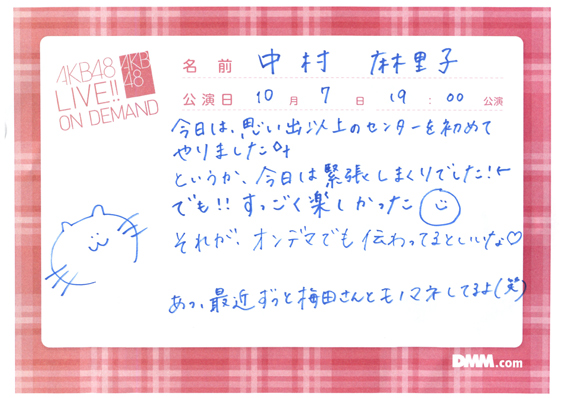 AKB48
LIVE!!
ON DEMAND
AKB
48
名前 中村 麻里子
公演日 10月7日 19:00公演
今日は、思い出以上のセンターを初めて
やりました
というか、今日は緊張しまくりでした!
でも!!すっごく楽しかった
それが、オンデマでも伝わってるといいな♡
あっ、最近ずっと梅田さんとモノマネしてるよ(笑)
DMM.com